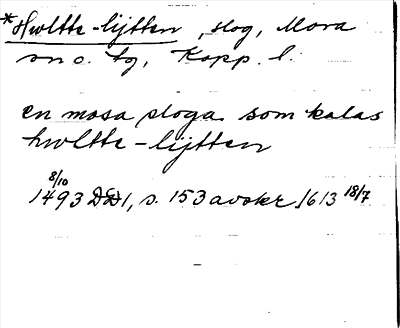 *Hwltte-lijtten, slog, Mora
sn o. tg, Kopp. l.
en mosa sloga som kalas
hwltte-lijtten
8/10
1493 DD1, s. 153 avskr 1613 18/7